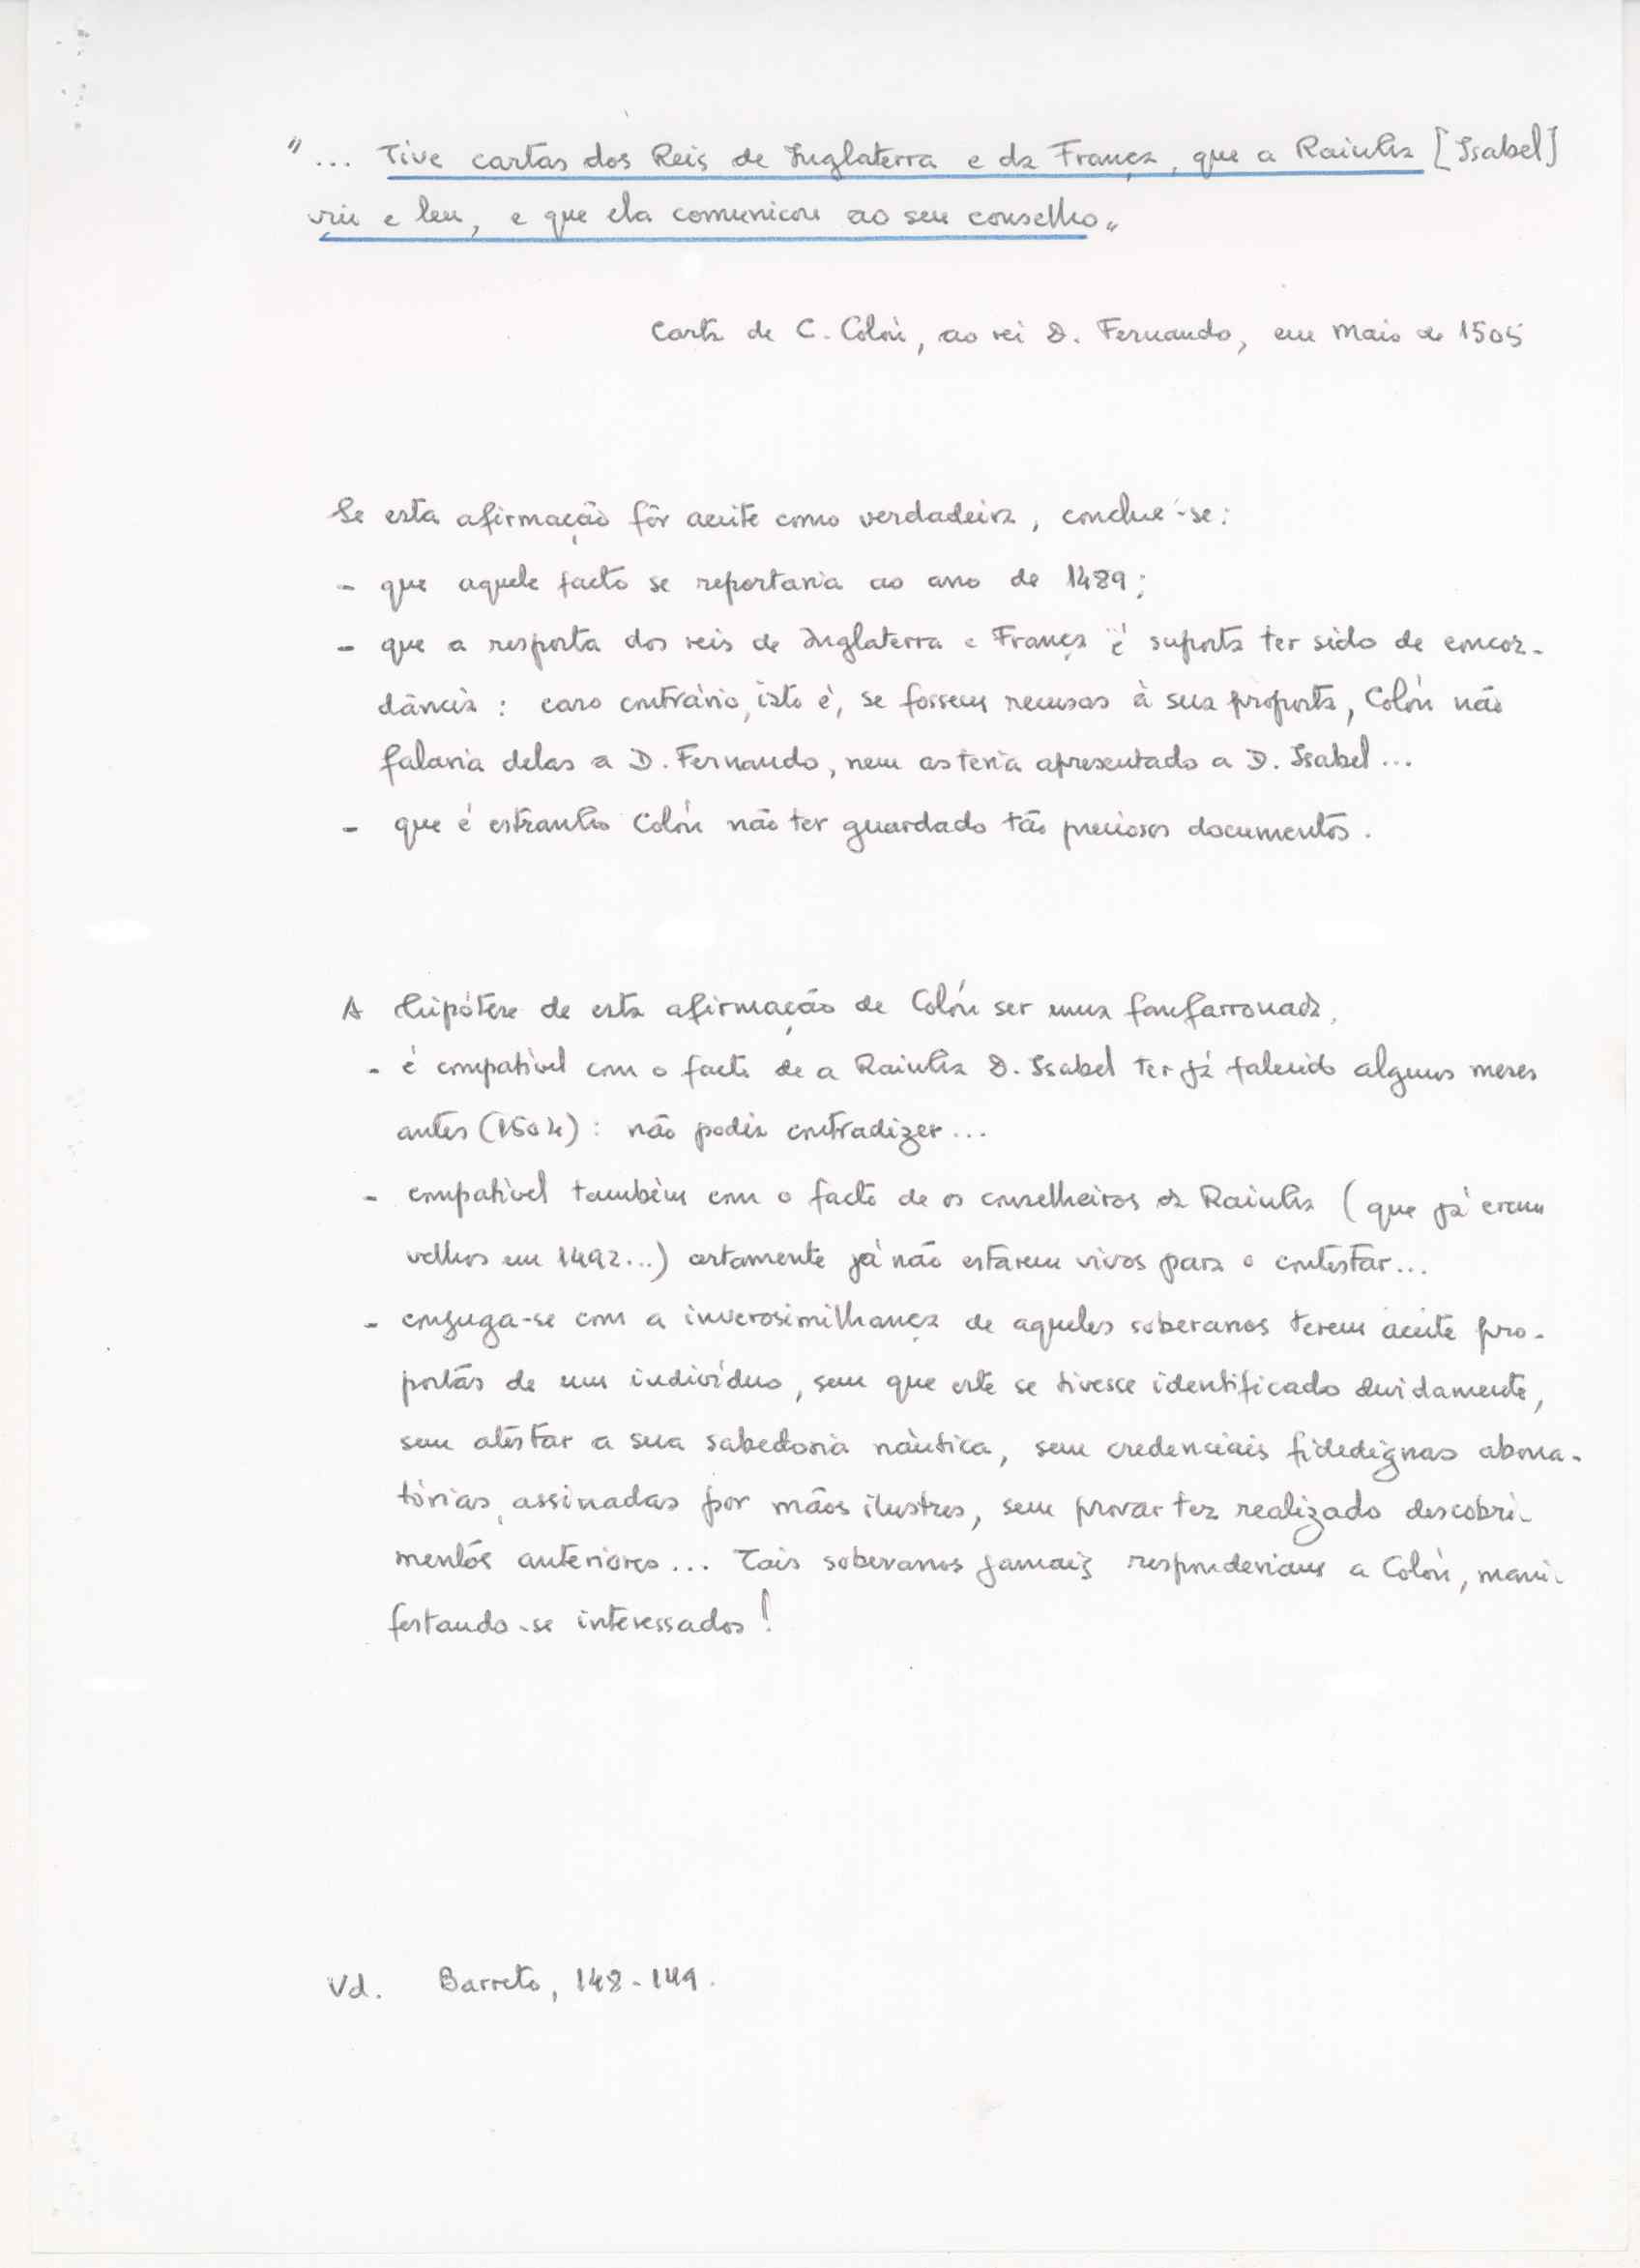 "... Tive cartas dos Reis de Inglaterra e da França, que a Rainha [Isabel]
viu e leu, e que ela comunicou ao seu conselho"
Carta de C. Colón, ao rei D. Fernando, em Maio de 1505
Se esta afirmação fôr aceite como verdadeira, conclue-se:
- que aquele facto se reportaria ao ano de 1489;
- que a resposta dos reis de Inglaterra e França é suposta ter sido de concor-
dância: caso contrário, isto é, se fossem recusas à sua proposta, Colón não
falaria delas a D. Fernando, nem as teria apresentado a D. Isabel...
- que é estranho Colón não ter guardado tão preciosos documentos.
A hipótese de esta afirmação de Colón ser uma fanfarronada,
- é compatível com o facto de a Rainha D. Isabel ter já falecido alguns meses
antes (1504): não podia contradizer...
- compatível também com o facto de os conselheiros da Rainha (que já eram
velhos em 1492...) certamente já não estarem vivos para o contestar...
- conjuga-se com a inverosimilhança de aqueles soberanos terem aceite pro-
postas de um indivíduo, sem que este se tivesse identificado devidamente,
sem atestar a sua sabedoria náutica, sem credenciais fidedignas abona-
tórias, assinadas por mãos ilustres, sem provar ter realizado descobri-
mentos anteriores... Tais soberanos jamais responderiam a Colón, mani-
festando-se interessados!
Vd. Barreto, 148-149.